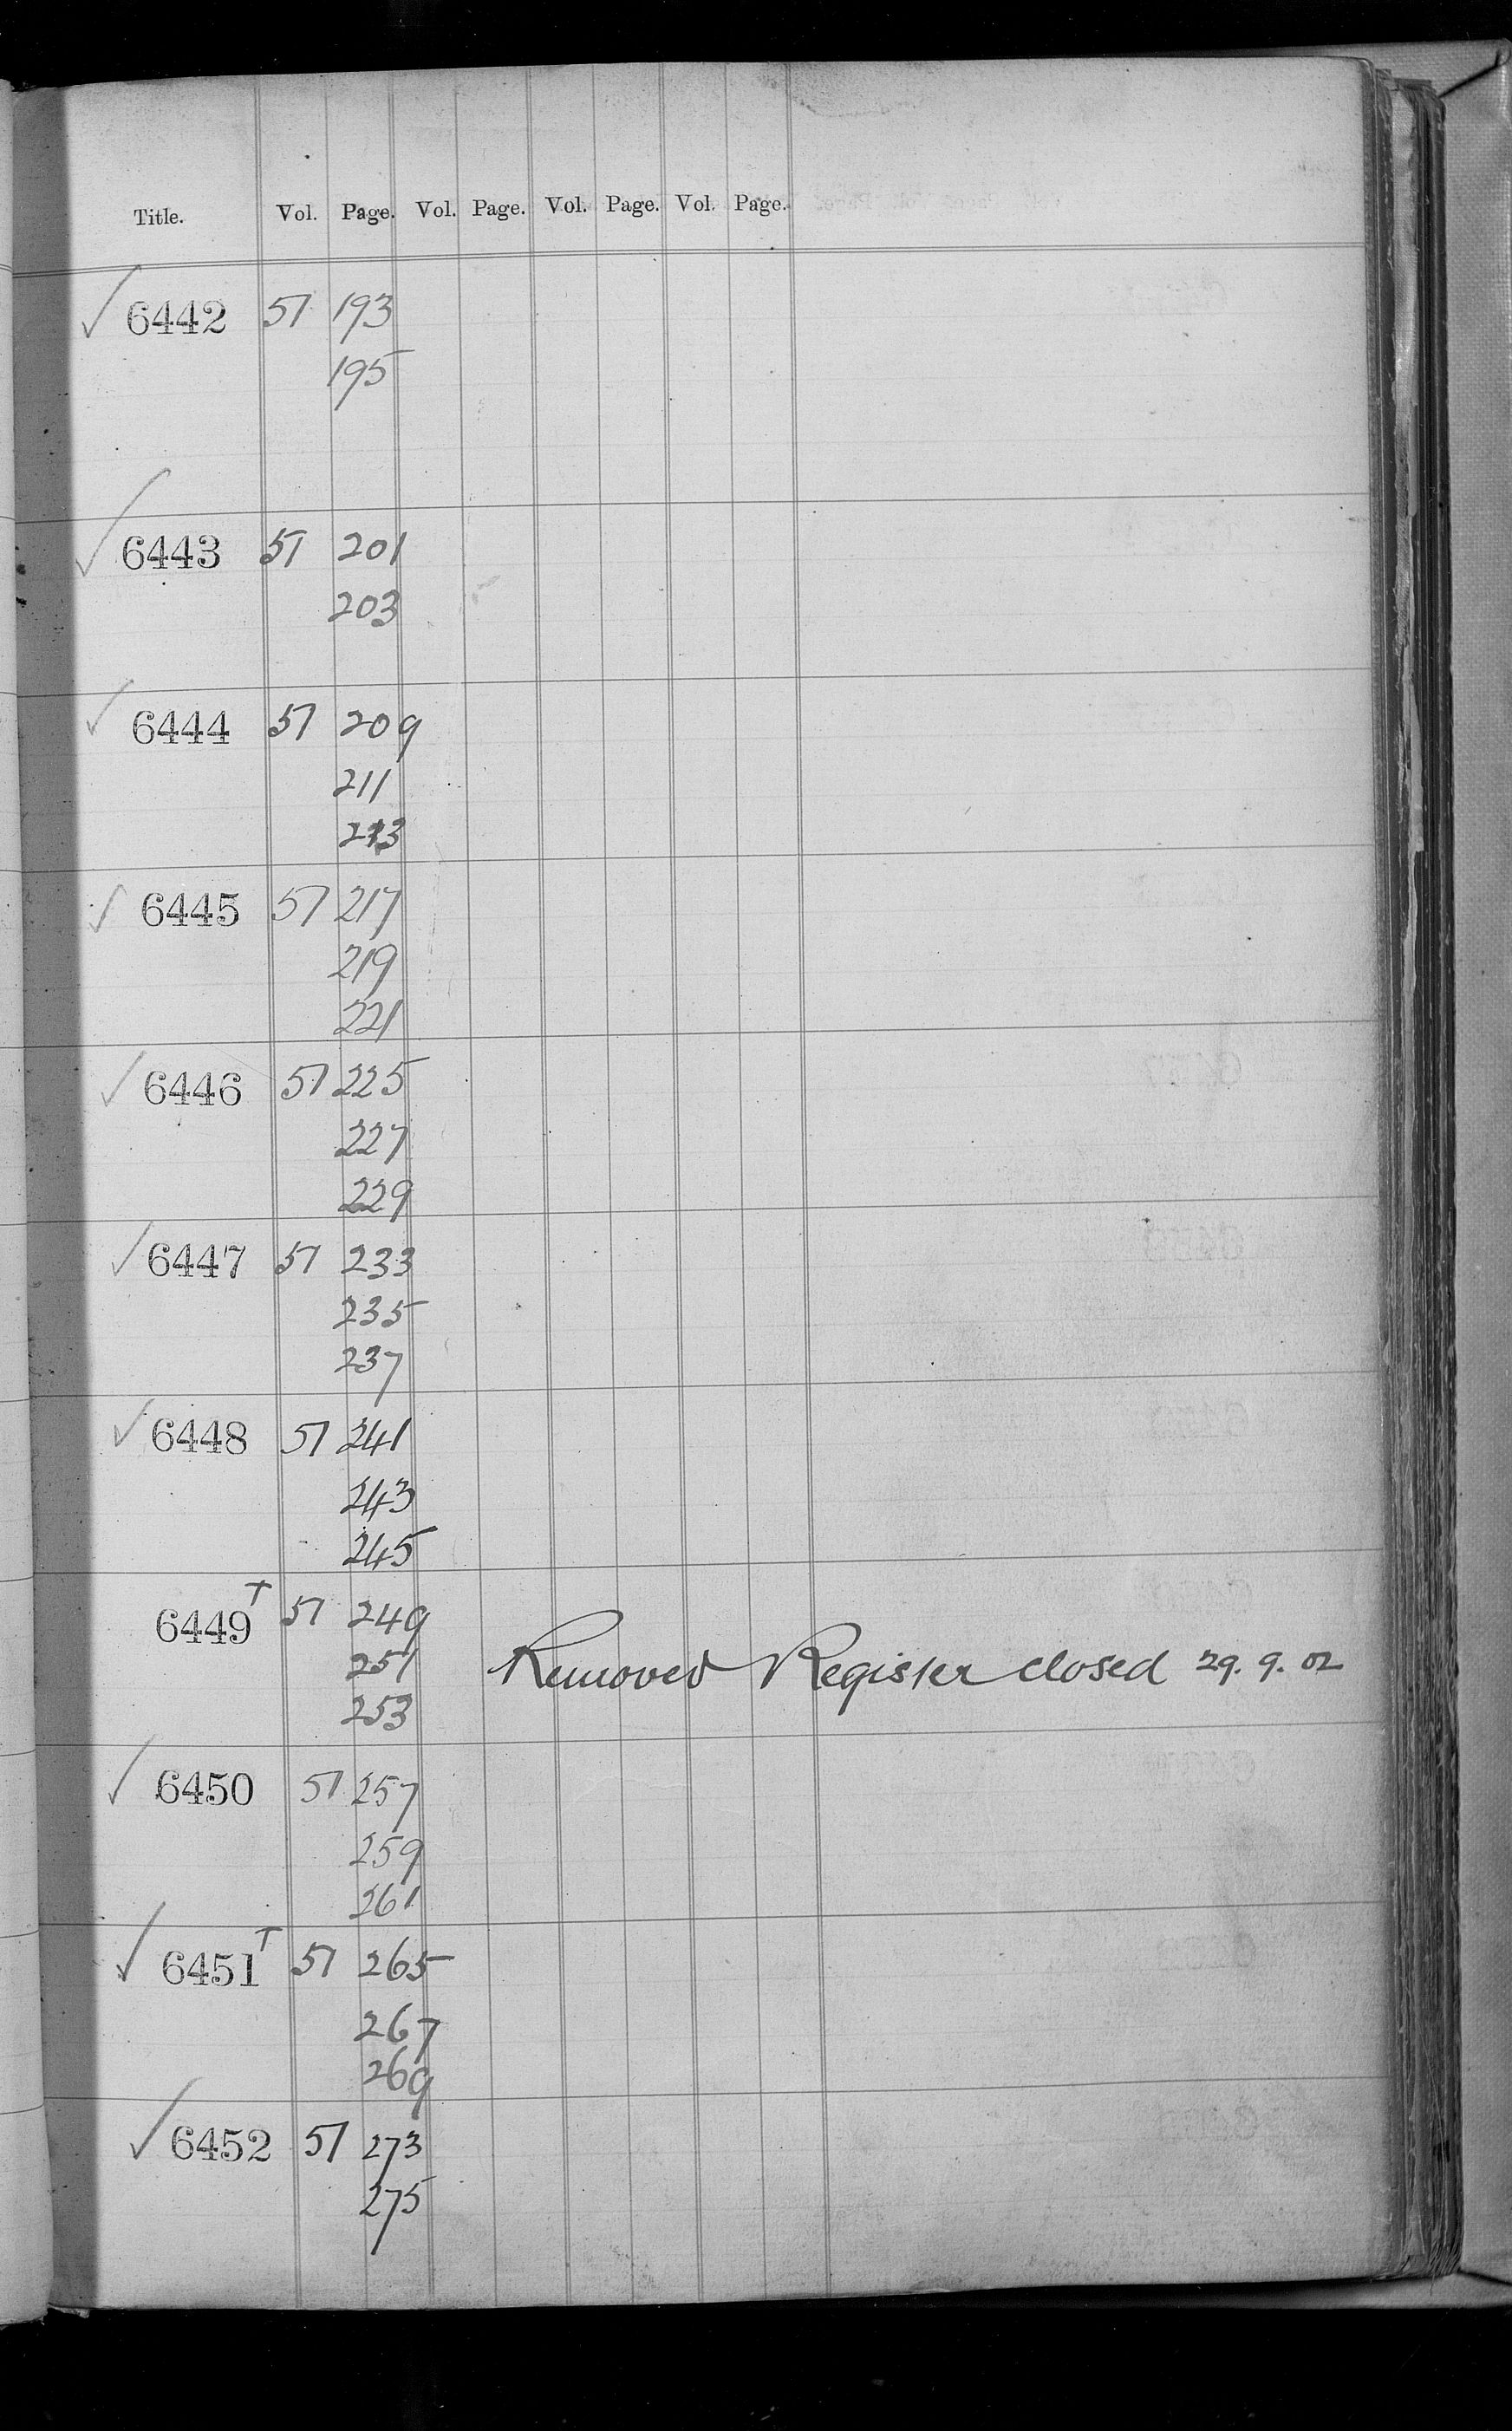 Title. Vol. Page. Vol. Page. Vol. Page. Vol. Page.
✓ 6442 51 193
195
✓ 6443 51 201
203
✓ 6444 51 209
211
213
✓ 6445 51 217
219
221
✓ 6446 51 225
227
229
✓ 6447 51 233
235
237
✓ 6448 51 241
243
245
6449 T 51 249
251 Removed Register closed 29. 9. 02
253
✓ 6450 51 257
259
261
✓ 6451 T 51 265
267
269
✓ 6452 51 273
275